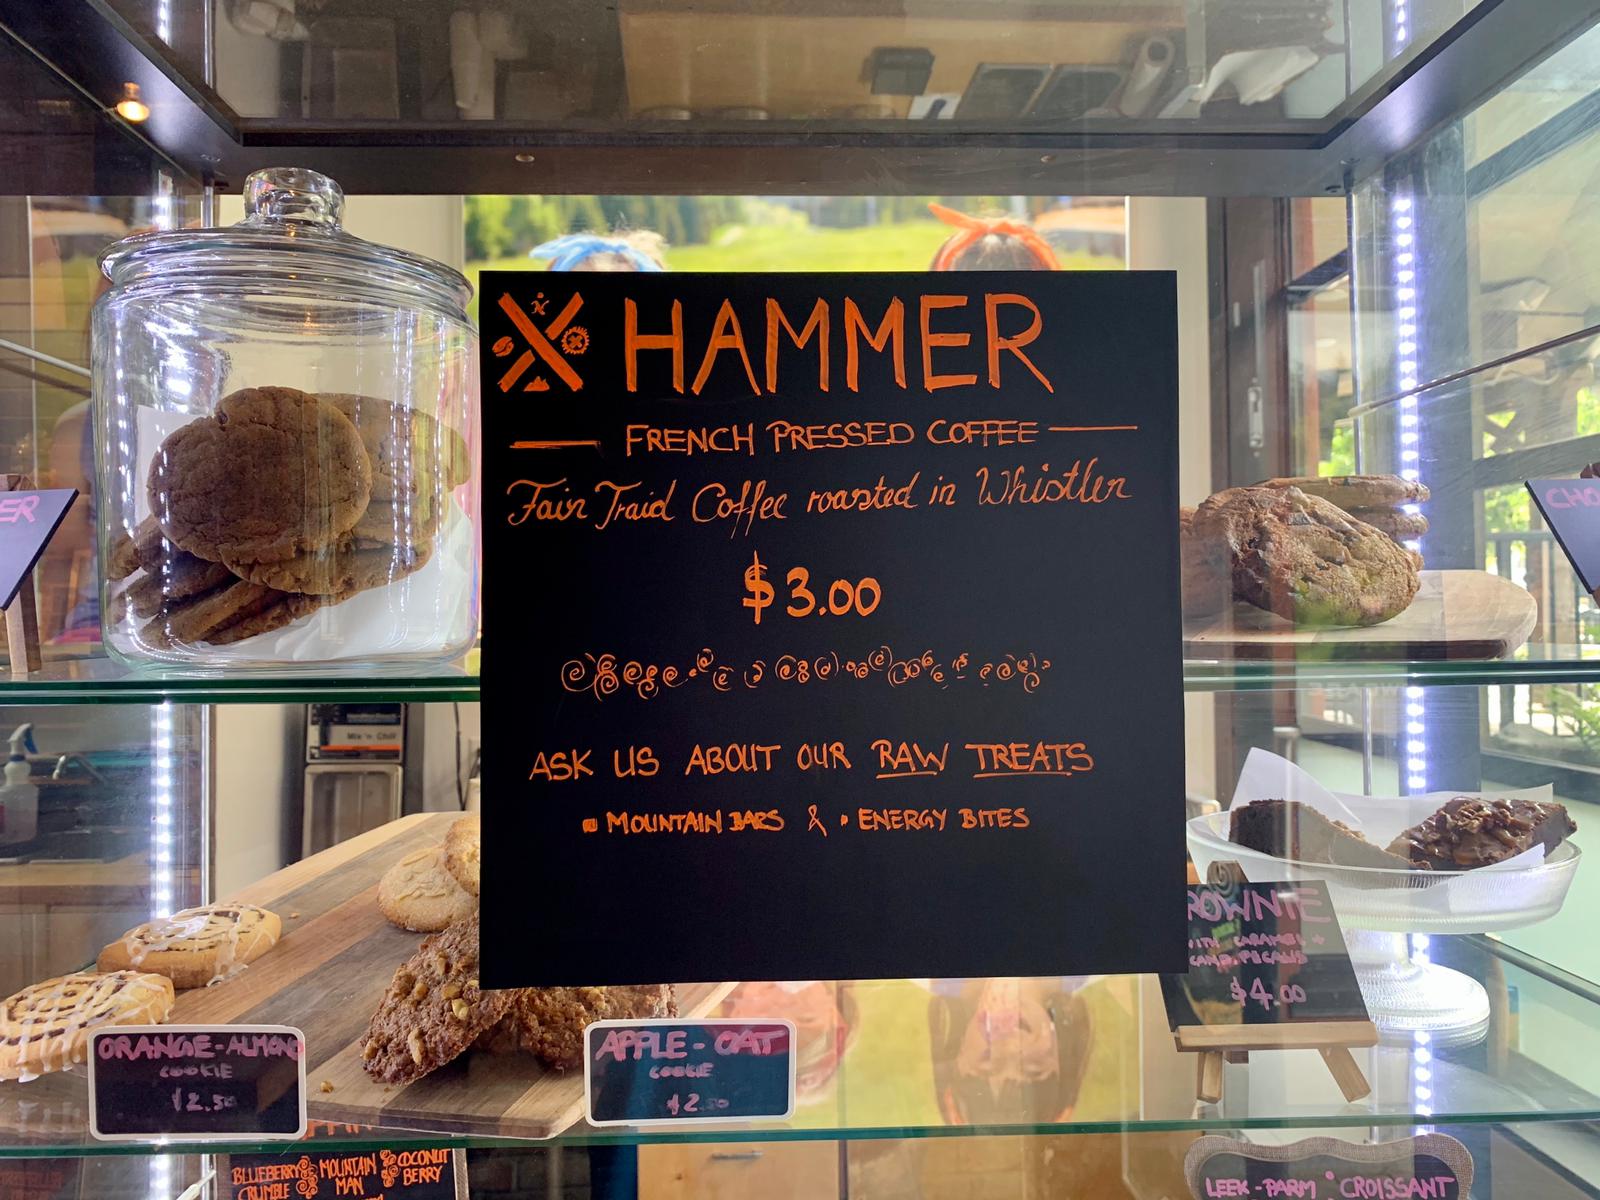 HAMMER
FRENCH PRESSED COFFEE
Fair Traid Coffee roasted in Whistler
$3.00
ASK US ABOUT OUR RAW TREATS
▪ MOUNTAIN BARS & • ENERGY BITES
ER
CHO
Mix 'n Chill
ROWNIE
CARAMEL +
PECANS
$4.00
ORANGE-ALMOND
COOKIE
$2.50
APPLE-OAT
COOKIE
$2.50
BLUEBERRY CRUMBLE
MOUNTAIN MAN
COCONUT BERRY
LEEK-PARM CROISSANT